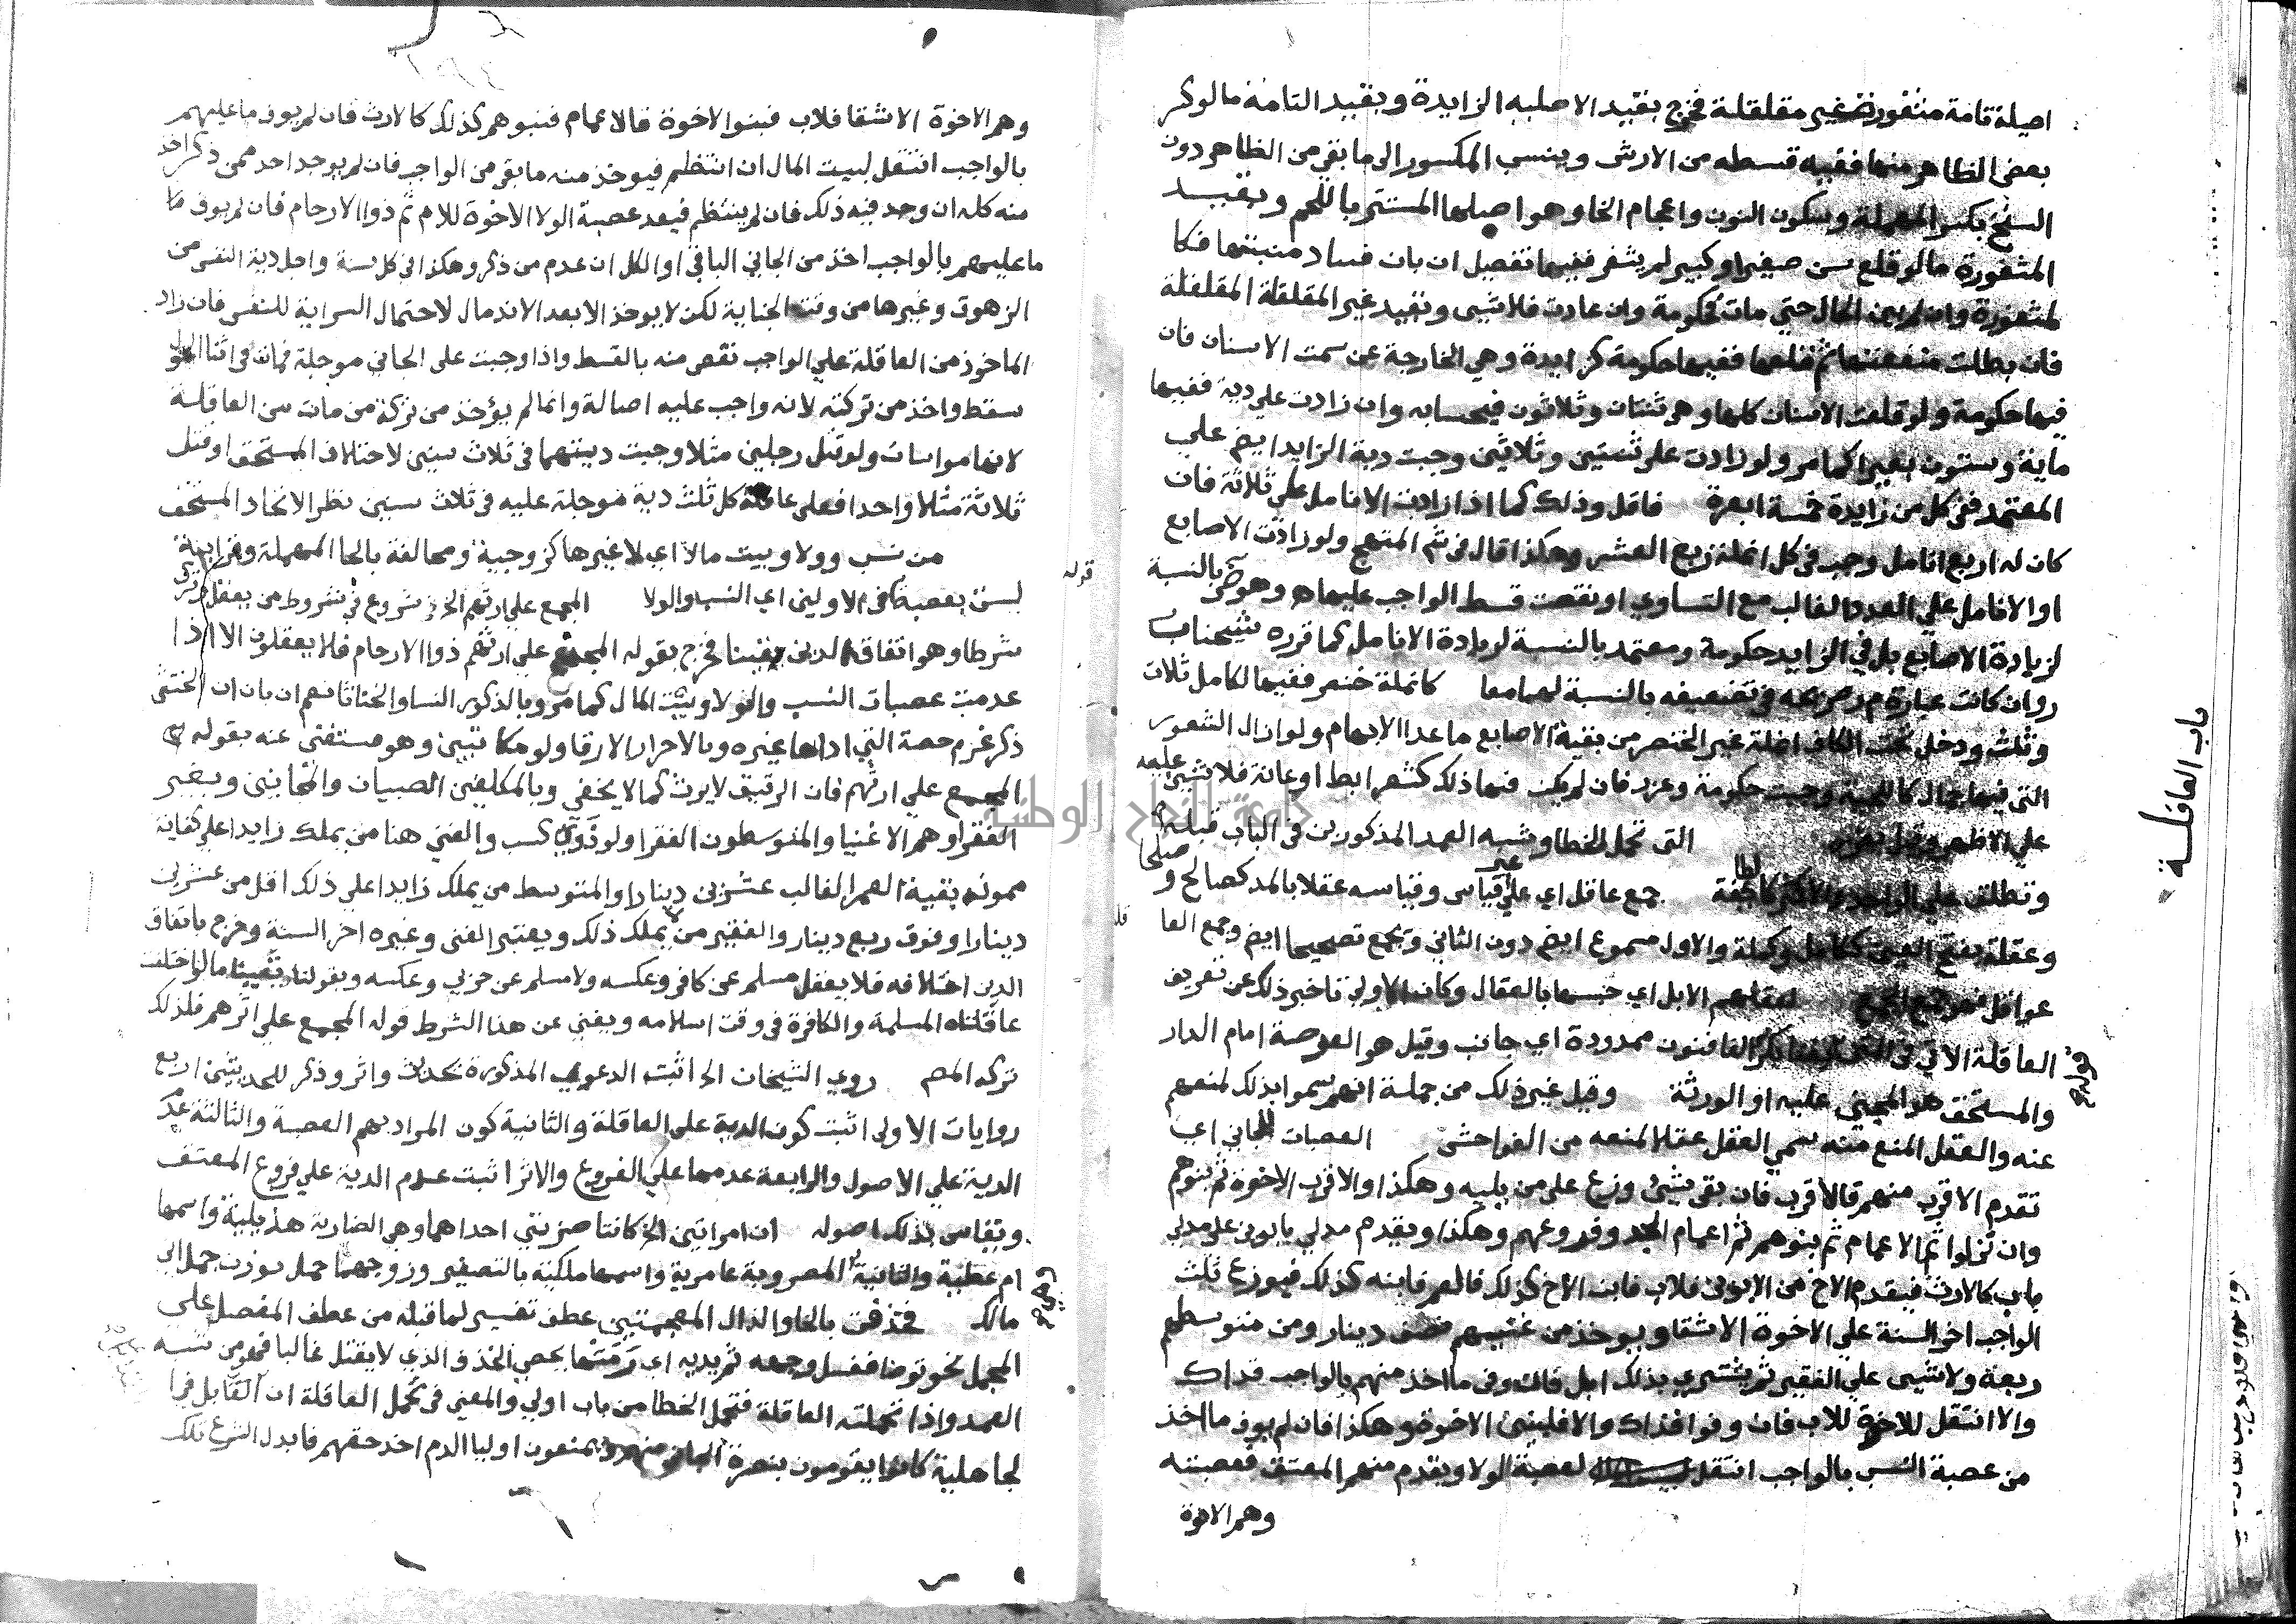 اصلية تامة مثغورة غير مقلقلة فخرج بقيد الاصليه الزايدة وبقيد التامة ما لو كسر
بعض الظاهر منها ففيه قسطه من الارش وينسب المكسور الى ما بقي من الظاهر دون
السنخ بكسر المهملة وسكون النون واعجام الخا وهو اصلها المستتر باللحم وبقيد
المثغورة ما لو قلع سن صغير او كبير لم يثغر ففيها تفصيل ان بان فساد منبتها فكا
لمثغورة وان لم يبن الحال حتي مات فحكومة وان عادت فلا شيى وبقيد غير المقلقلة المقلقلة
فان بطلت منفعتها ثم قلعها ففيها حكومة كزايدة وهي الخارجة عن سمت الاسنان فان
فيها حكومة ولو قلعت الاسنان كلها وهي ثنتان وثلاثون فبحسابه وان زادت علي دية ففيها
ماية وستون بعيرا كما مر ولو زادت على ثنتين وثلاثين وجبت دية الزايد ايض علي
المعتمد ففي كل سن زايدة خمسة ابعرة فاقل وذلك كما اذا زادت الانامل على ثلاثة فان
كان له اربع انامل وجب في كل انملة ربع العشر وهكذا قال في شر المنهج ولو زادت الاصابع
او الانامل علي العدد الغالب مع التساوي او نقصت قسط الواجب عليها وهو بالنسبة
لزيادة الاصابع بل في الزايد حكومة ومعتمد بالنسبة لزيادة الانامل كما قرره شيخنا
وان كانت عبارة م ر صريحه في تضعيفه بالنسبة لهما معا كانملة خنصر ففيها لكامل ثلاث
وثلث ودخل تحت الكاف انملة غير الخنصر من بقية الاصابع ماعدا الابهام ولو ازال الشعور
التي فيها جمال كاللحية وجبت حكومة وعزر فان لم يكن فيها ذلك كشعر ابط او عانة فلا شيى عليه
علي الاظهر التى تحمل الخطا وشبه العمد المذكورين في الباب قبله
وتطلق علي الواحد والاكثر جمع عاقل اي علي غير قياس وقياسه عقلا بالمد كصالح وصلحا
وعقلة بفتح العين ككامل وكملة والاول مسموع ايض دون الثاني ويجمع تصحيحا ايض وجمع العا
عواقل فهو جمع الجمع لعقلهم الابل اي حبسها بالعقال وكان الاولي تاخير ذلك عن تعريف
العاقلة الاتي في المتن بفنا بكسر الفا فنون ممدودة اي جانب وقيل هو العرصة امام الدار
والمستحق هو المجني عليه او الورثة وقيل غير ذلك من جملة انهم سموا بذلك لمنعهم
عنه والعقل المنع منه سمي العقل عقلا لمنعه من الفواحش العصبات للجاني اي
تقدم الاقرب منهم فالاقرب فان بقى شيئ وزع علي من يليه وهكذا والاقرب الاخوة ثم بنوهم
وان نزلوا ثم الاعمام ثم بنوهم ثم اعمام الجد وفروعهم وهكذا ويقدم مدلي بابوين على مدلي
باب كالارث فيقدم الاخ من الابوين فلاب فابن الاخ كذلك فالعم فابنه كذلك فيوزع ثلث
الواجب اخر السنة علي الاخوة الاشقا ويوخذ من غنيهم نصف دينار ومن متوسطهم
ربعة ولا شيى علي الفقير ثم يشترى بذلك ابل فان وفى ما اخذ منهم بالواجب فذاك
والا انتقل للاخوة للاب فان وفوا فذاك والا فلبني الاخوة وهكذا فان لم يوف ما اخذ
من عصبة النسب بالواجب انتقل لعصبة الولا ويقدم منهم المعتق فعصبته
وهم الاخوة
باب العاقلة
قوله
وهم الاخوة الاشقا فلاب فبنوا الاخوة فالاعمام فبنوهم كذلك كالارث فان لم يوف ما عليهم
بالواجب انتقل لبيت المال ان انتظم فيوخذ منه ما بقي من الواجب فان لم يوجد احد ممن ذكر اخذ
منه كله ان وجد فيه ذلك فان لم ينتظم فبعد عصبة الولا الاخوة للام ثم ذوا الارحام فان لم يوف ما
ما عليهم بالواجب اخذ من الجاني الباقي او الكل ان عدم من ذكر وهكذا في كل سنة واجل دية النفس من
الزهوق وغيرها من وقت الجناية لكن لا يوخذ الا بعد الاندمال لاحتمال السراية للنفس فان زاد
الماخوذ من العاقلة علي الواجب نقص منه بالقسط واذا وجبت على الجاني موجلة فمات في اثنا الحول
سقط واخذ من تركته لانه واجب عليه اصالة وانما لم يؤخذ من تركة من مات من العاقلة
لانها مواساة ولو قتل رجلين مثلا وجبت ديتهما في ثلاث سنين لاختلاف المستحق او قتل
ثلاثة مثلا واحدا فعلى عاقلة كل ثلث دية موجلة عليه في ثلاث سنين نظر الاتحاد المستحق
من نسب وولا وبيت مال اي لا غيرها كزوجية ومحالفة بالحا المهملة وقرابة
ليست بعصبة في الاولين اي النسب والولا المجمع علي ارثهم الخ شروع في شروط من يعقل
شرطا وهو اتفاق الدين يقينا فخرج بقوله المجمع علي ارثهم ذوا الارحام فلا يعقلون الا اذا
عدمت عصبات النسب والولا وبيت المال كما مر وبالذكور النسا والخناثا نعم ان بان ان الخنثى
ذكر غرم حصة التي اداها غيره وبالاحرار الارقا ولو مكاتبين وهو مستغني عنه بقوله
المجمع علي ارثهم فان الرقيق لا يرث كما لا يخفي وبالمكلفين الصبيان والمجانين وبغير
الفقرا وهم الاغنيا والمتوسطون الفقرا ولو ذوي كسب والغني هنا من يملك زايدا علي كفاية
ممونه بقية العمر الغالب عشرين دينارا والمتوسط من يملك زايدا علي ذلك اقل من عشرين
دينارا وفوق ربع دينار والفقير من لا يملك ذلك ويعتبر الغنى وغيره اخر السنة وخرج باتفاق
الدين اختلافه فلا يعقل مسلم عن كافر وعكسه ولا مسلم عن حربي وعكسه وبقولنا يقينا ما لو اختلف
عاقلتاه المسلمة والكافرة في وقت اسلامه ويغني عن هذا الشرط قوله المجمع علي ارثهم فلذلك
تركه المص روي الشيخان الخ اثبت الدعوي المذكورة بحديث واثر وذكر للحديثين اربع
روايات الاولى اثبت كون الدية على العاقلة والثانية كون المراد بهم العصبة والثالثة عدم
الدية علي الاصول والرابعة عدمها علي الفروع والاثر اثبت عدم الدية علي فروع المعتق
ويقاس بذلك اصوله ان امراتين الخ كانتا ضرتين احداهما وهي الضاربة هذيلية واسمها
ام عطية والثانية المضروبة عامرية واسمها مليكة بالتصغير وزوجهما حمل بوزن جمل ابن
مالك فخذفت بالخا والذال المعجمتين عطف تفسير لما قبله من عطف المفصل على
المجمل نحو توضا فغسل وجهه ثم يديه اي رمتها بحصى الخذف والذي لا يقتل غالبا فهو من شبه
العمد واذا تحملته العاقلة فتحمل الخطا من باب اولي والمعني في تحمل العاقلة ان القبايل في ا
لجاهلية كانوا يقومون بنصرة الجاني منهم ويمنعون اوليا الدم اخذ حقهم فابدل الشرع تلك
قوله
قوله
جامعة النجاح الوطنية